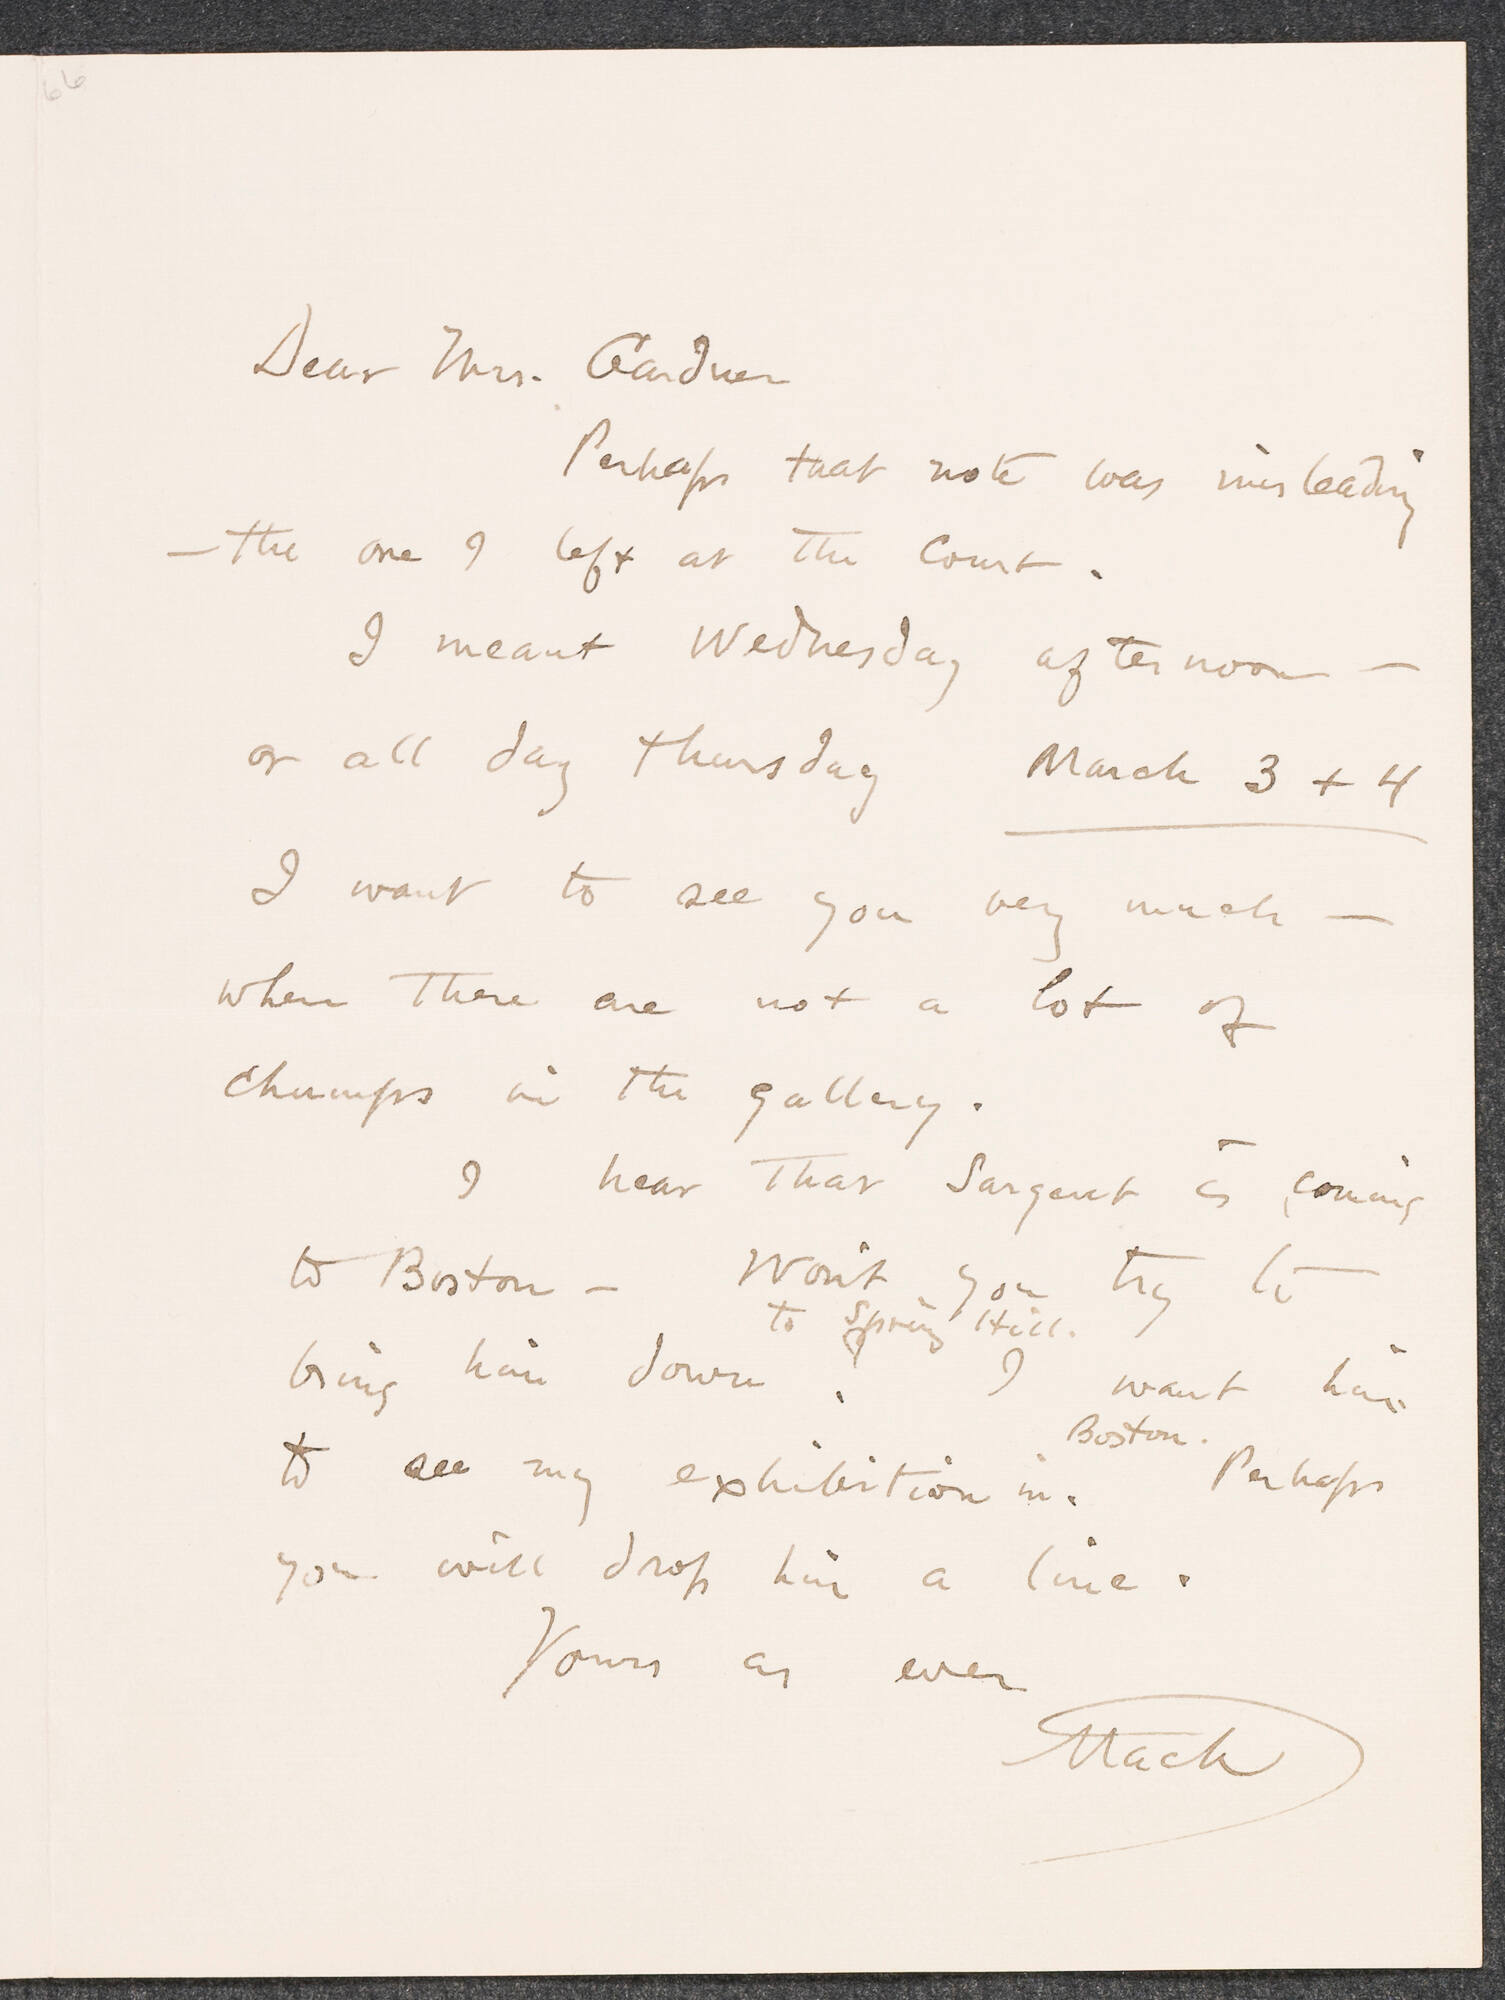 66
Dear Mrs. Gardner
Perhaps that note was misleading
— the one I left at the Court.
I meant Wednesday afternoon —
or all day Thursday March 3 + 4
I want to see you very much —
when there are not a lot of
chumps in the gallery.
I hear that Sargent is coming
to Boston — Won't you try to
to Spring Hill.
bring him down? I want him
Boston.
to see my exhibition in. Perhaps
you will drop him a line.
Yours as ever
Mack